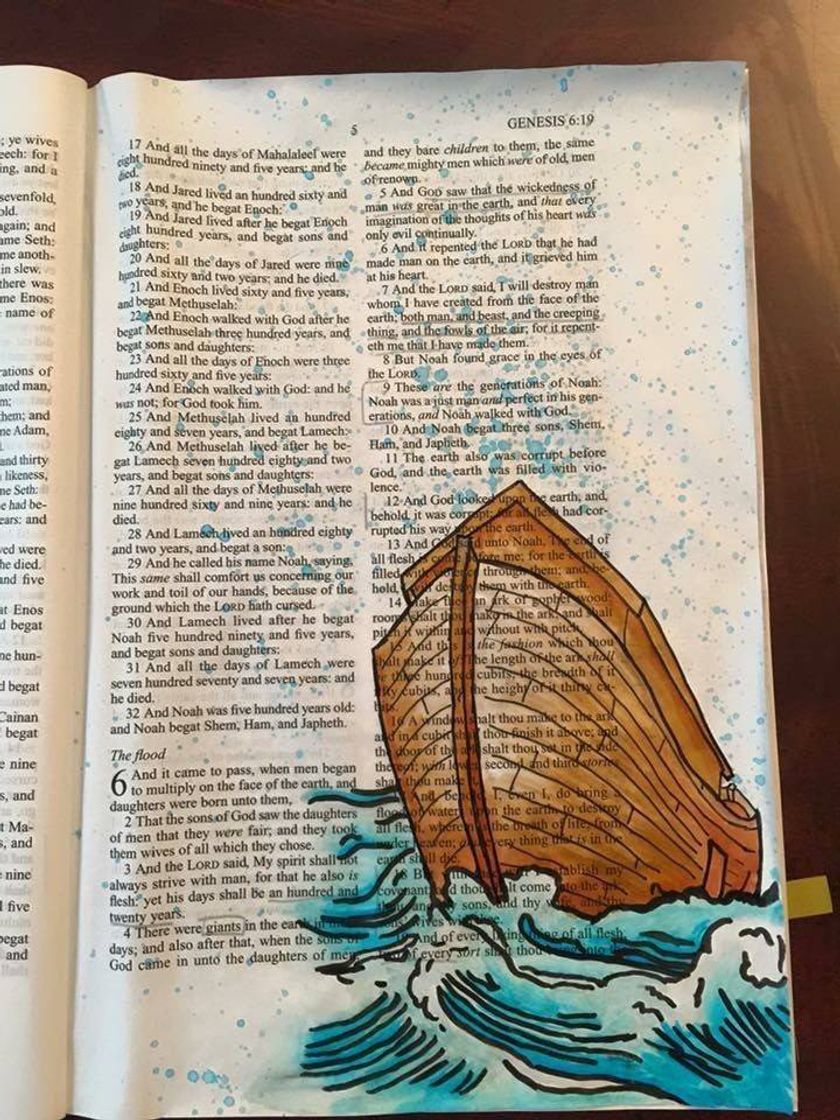 ; ye wives
eech: for I
ing, and a
sevenfold,
old.
again; and
ame Seth:
me anoth-
in slew.
there was
me Enos:
name of
rations of
ated man,
m;
hem; and
ne Adam,
and thirty
likeness,
ne Seth:
e had be-
ears: and
ved were
he died.
and five
at Enos
d begat
ne hun-
d begat
Cainan
begat
e nine
s, and
t Ma-
s, and
e nine
l five
begat
and
5
GENESIS 6:19
17 And all the days of Mahalaleel were
eight hundred ninety and five years: and he
died.
18 And Jared lived an hundred sixty and
two years, and he begat Enoch:
19 And Jared lived after he begat Enoch
eight hundred years, and begat sons and
daughters:
20 And all the days of Jared were nine
hundred sixty and two years: and he died.
21 And Enoch lived sixty and five years,
and begat Methuselah:
22 And Enoch walked with God after he
begat Methuselah three hundred years, and
begat sons and daughters:
23 And all the days of Enoch were three
hundred sixty and five years:
24 And Enoch walked with God: and he
was not; for God took him.
25 And Methuselah lived an hundred
eighty and seven years, and begat Lamech:
26 And Methuselah lived after he be-
gat Lamech seven hundred eighty and two
years, and begat sons and daughters:
27 And all the days of Methuselah were
nine hundred sixty and nine years: and he
died.
28 And Lamech lived an hundred eighty
and two years, and begat a son:
29 And he called his name Noah, saying,
This same shall comfort us concerning our
work and toil of our hands, because of the
ground which the LORD hath cursed.
30 And Lamech lived after he begat
Noah five hundred ninety and five years,
and begat sons and daughters:
31 And all the days of Lamech were
seven hundred seventy and seven years: and
he died.
32 And Noah was five hundred years old:
and Noah begat Shem, Ham, and Japheth.
The flood
6 And it came to pass, when men began
to multiply on the face of the earth, and
daughters were born unto them,
2 That the sons of God saw the daughters
of men that they were fair; and they took
them wives of all which they chose.
3 And the LORD said, My spirit shall not
always strive with man, for that he also is
flesh: yet his days shall be an hundred and
twenty years.
4 There were giants in the earth in
days; and also after that, when the sons of
God came in unto the daughters of men,
and they bare children to them, the same
became mighty men which were of old, men
of renown.
5 And GOD saw that the wickedness of
man was great in the earth, and that every
imagination of the thoughts of his heart was
only evil continually.
6 And it repented the LORD that he had
made man on the earth, and it grieved him
at his heart.
7 And the LORD said, I will destroy man
whom I have created from the face of the
earth; both man, and beast, and the creeping
thing, and the fowls of the air; for it repent-
eth me that I have made them.
8 But Noah found grace in the eyes of
the LORD.
9 These are the generations of Noah:
Noah was a just man and perfect in his gen-
erations, and Noah walked with God.
10 And Noah begat three sons, Shem,
Ham, and Japheth.
11 The earth also was corrupt before
God, and the earth was filled with vio-
lence.
12 And God looked upon the earth, and,
behold, it was corrupt; for all flesh had cor-
rupted his way upon the earth.
13 And God unto Noah, The end of
all flesh is before me; for the earth is
filled with through them; and, be-
hold, I will destroy them with the earth.
14 Make an ark of gopher wood:
rooms shalt thou make in the ark, and shalt
pitch it within and without with pitch.
15 And this the fashion which thou
shalt make it of: The length of the ark shall
be three hundred cubits, the breadth of it
fifty cubits, and the height of it thirty cu-
bits.
16 A window shalt thou make to the ark,
and in a cubit thou finish it above; and
the door of the ark shalt thou set in the side
with second, and third stories
shalt thou make
And, behold, I, even I, do bring a
flood of waters upon the earth, to destroy
all flesh, wherein the breath of life, from
under heaven; every thing that is in the
earth shall die.
establish my
covenant; and thou come into the ark,
sons, and thy wife, and thy
sons' wives
And of every living thing of all flesh,
of every sort shalt thou